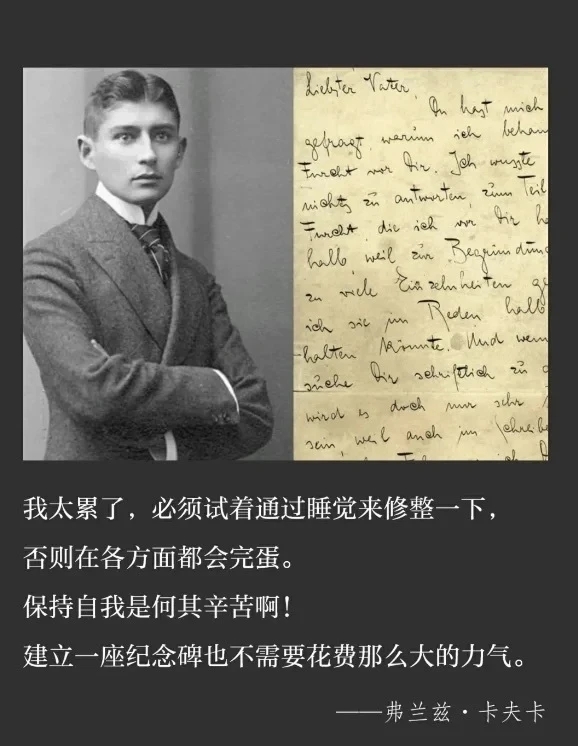 Liebster Vater,
Du hast mich
gefragt, warum ich behau
Furcht vor Dir. Ich wusste
nichts zu antworten, zum Teil
Furcht, die ich vor Dir ha
halb weil zur Begründung
zu viele Einzelnheiten ge
ich sie im Reden halb
halten könnte. Und wenn
suche Dir schriftlich zu a
wird es doch nur sehr
sein, weil auch im Schreibe
我太累了，必须试着通过睡觉来修整一下，
否则在各方面都会完蛋。
保持自我是何其辛苦啊！
建立一座纪念碑也不需要花费那么大的力气。
——弗兰兹·卡夫卡